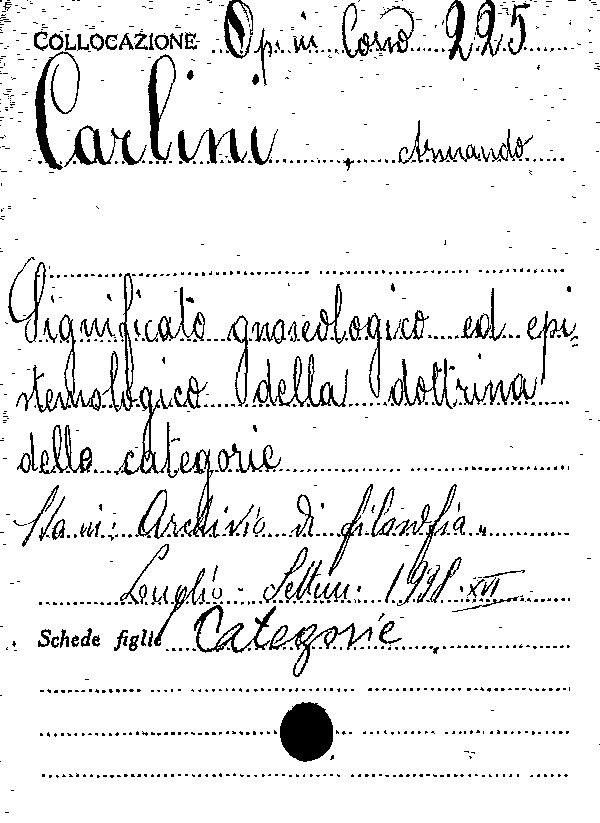 COLLOCAZIONE Op. in Corso 225
Carlini, Armando
Significato gnoseologico ed epi-
stemologico della dottrina
delle categorie
Sta in: Archivio di filosofia.
Luglio - Settem. 1938. XVI
Schede figlie Categorie.